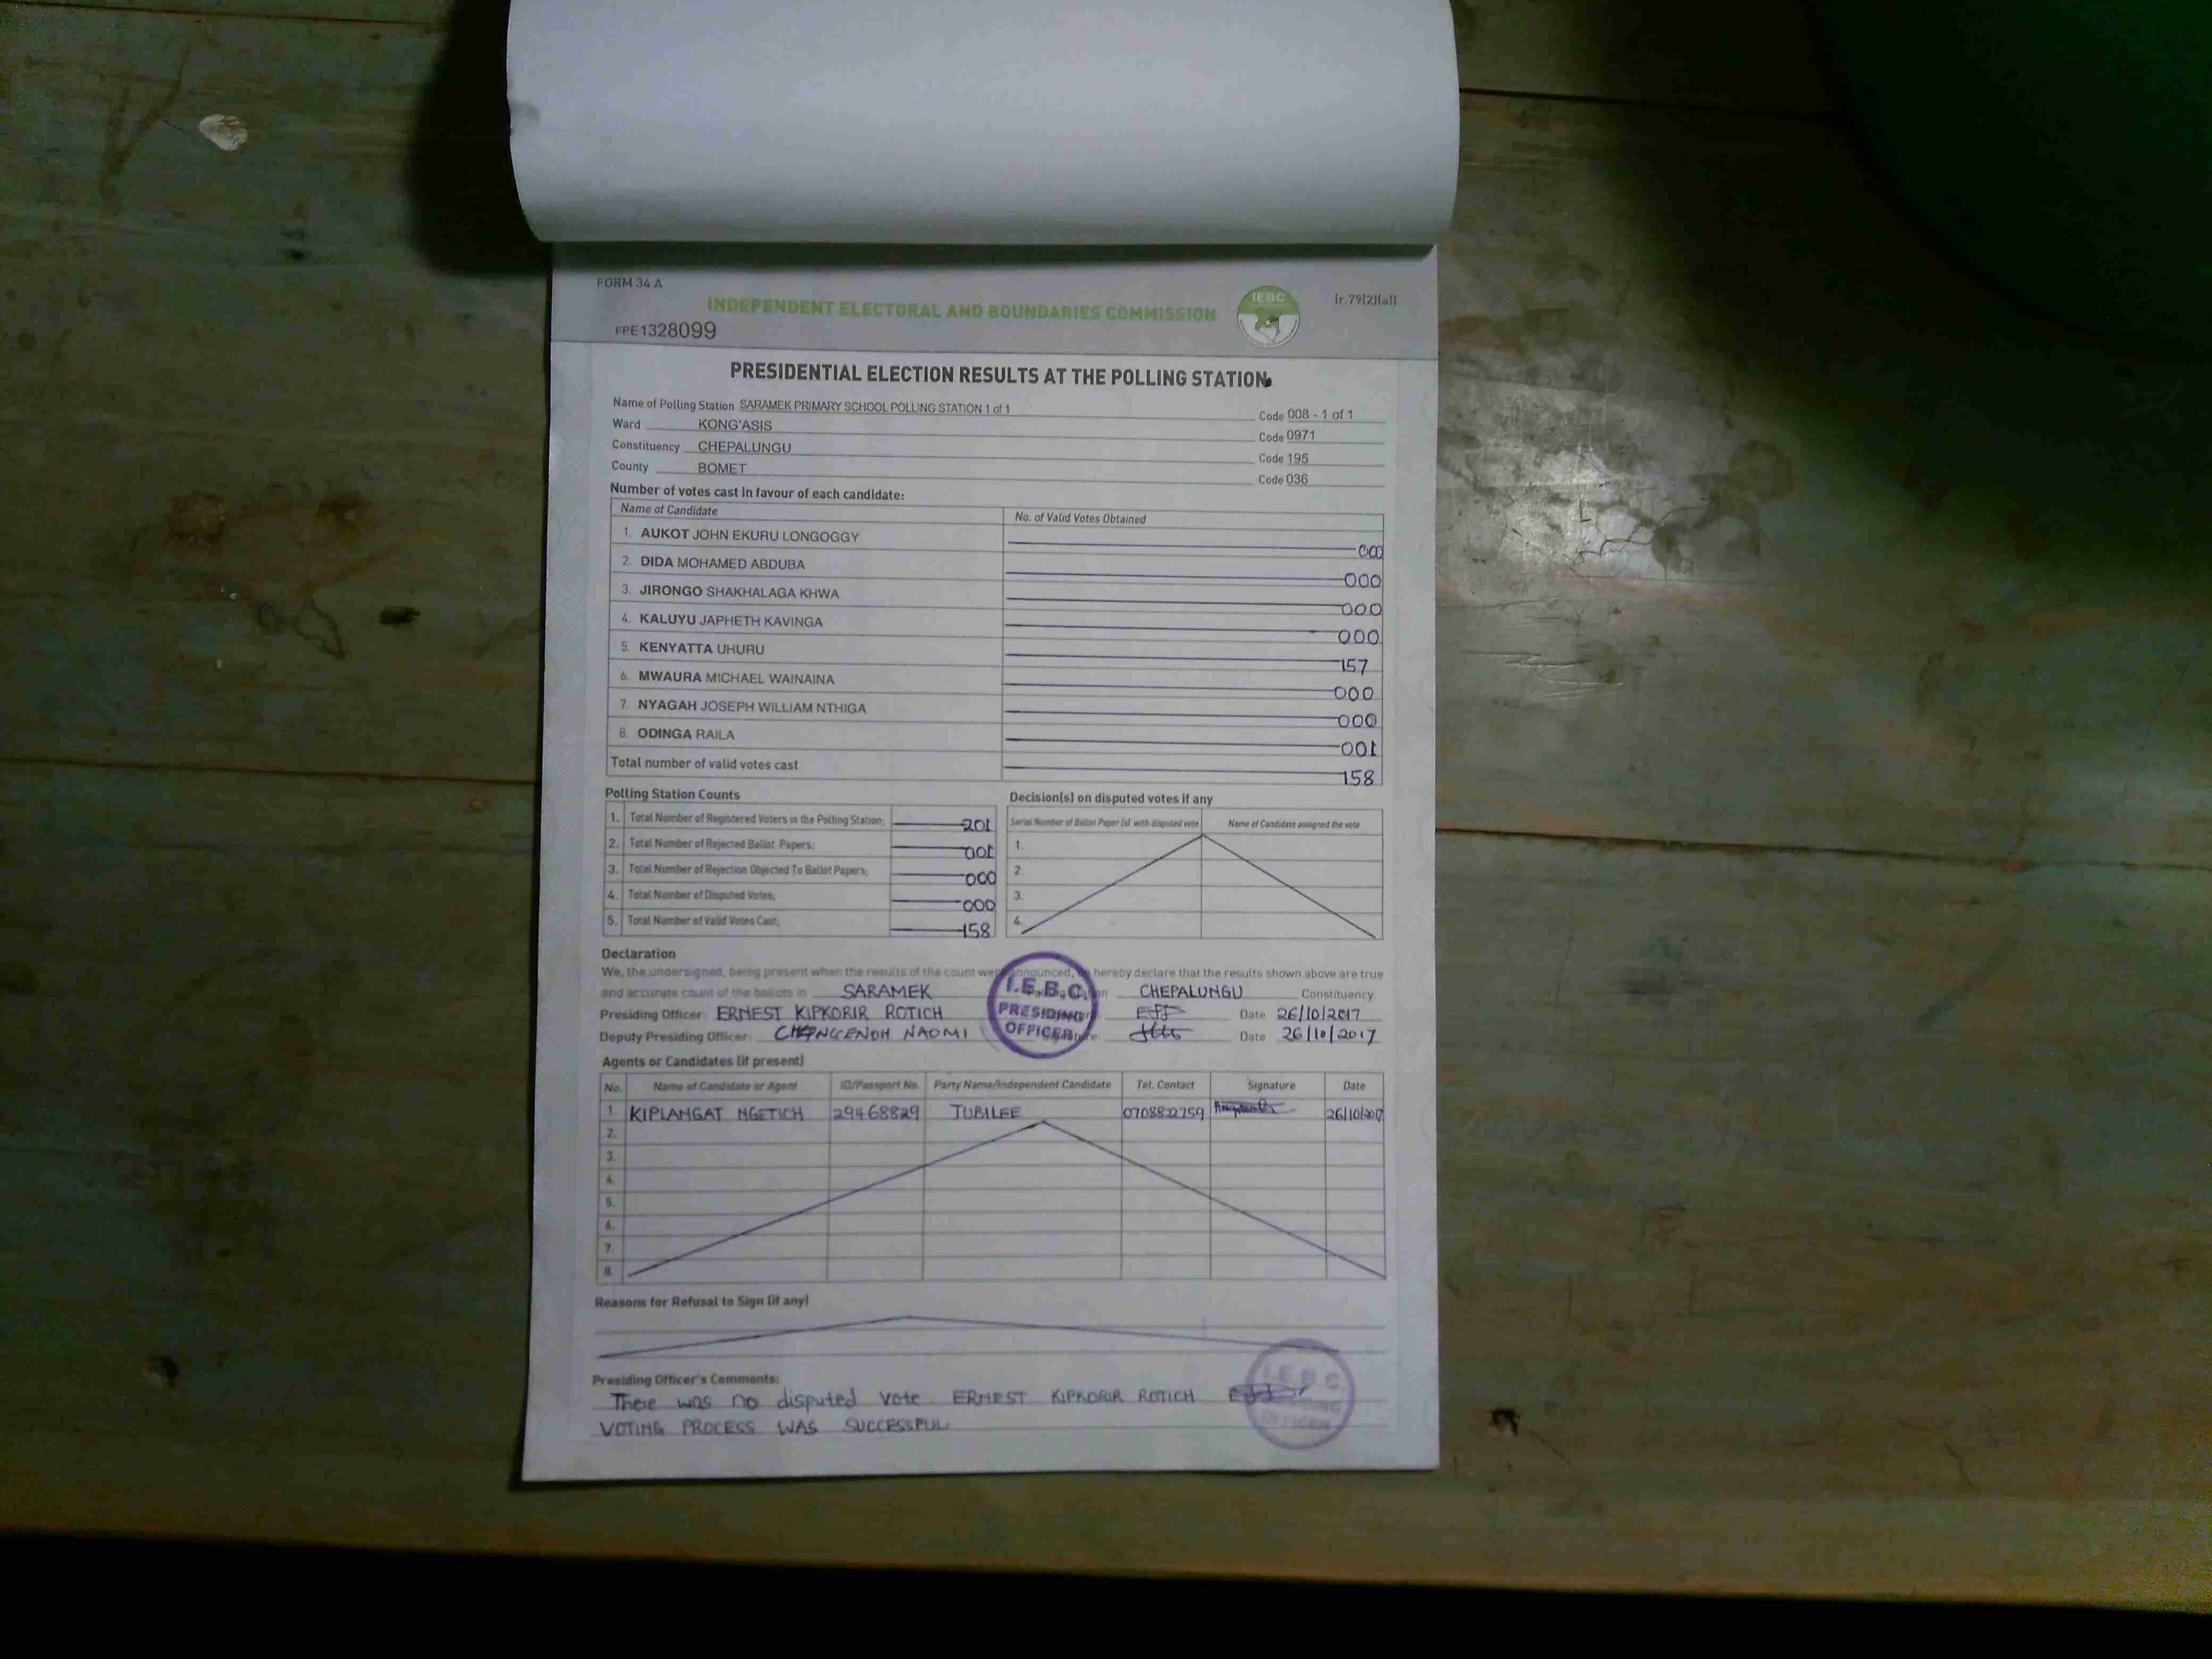 FORM 34 A
[r.79(2)(a)]
INDEPENDENT ELECTORAL AND BOUNDARIES COMMISSION
IEBC
FPE1328099
PRESIDENTIAL ELECTION RESULTS AT THE POLLING STATION
Name of Polling Station SARAMEK PRIMARY SCHOOL POLLING STATION 1 of 1 Code 008 - 1 of 1
Ward KONG'ASIS Code 0971
Constituency CHEPALUNGU Code 195
County BOMET Code 036
Number of votes cast in favour of each candidate:
Name of Candidate No. of Valid Votes Obtained
1. AUKOT JOHN EKURU LONGOGGY 000
2. DIDA MOHAMED ABDUBA 000
3. JIRONGO SHAKHALAGA KHWA 000
4. KALUYU JAPHETH KAVINGA 000
5. KENYATTA UHURU 157
6. MWAURA MICHAEL WAINAINA 000
7. NYAGAH JOSEPH WILLIAM NTHIGA 000
8. ODINGA RAILA 001
Total number of valid votes cast 158
Polling Station Counts
1. Total Number of Registered Voters in the Polling Station; 201
2. Total Number of Rejected Ballot Papers; 001
3. Total Number of Rejection Objected To Ballot Papers; 000
4. Total Number of Disputed Votes; 000
5. Total Number of Valid Votes Cast; 158
Decision(s) on disputed votes if any
Serial Number of Ballot Paper (s) with disputed vote Name of Candidate assigned the vote
1.
2.
3.
4.
Declaration
We, the undersigned, being present when the results of the count were announced, do hereby declare that the results shown above are true
and accurate count of the ballots in SARAMEK CHEPALUNGU Constituency.
Presiding Officer: ERNEST KIPKORIR ROTICH Date 26/10/2017
Deputy Presiding Officer: NAOMI Signature: Date 26/10/2017
I.E.B.C.
PRESIDING
OFFICER
Agents or Candidates (if present)
No. Name of Candidate or Agent ID/Passport No. Party Name/Independent Candidate Tel. Contact Signature Date
1. KIPLANGAT NGETICH 29468829 JUBILEE 26/10/2017
2.
3.
4.
5.
6.
7.
8.
Reasons for Refusal to Sign (if any)
Presiding Officer's Comments:
There was no disputed vote ERNEST KIPKORIR ROTICH
VOTING PROCESS WAS SUCCESSFUL
I.E.B.C.
OFFICER